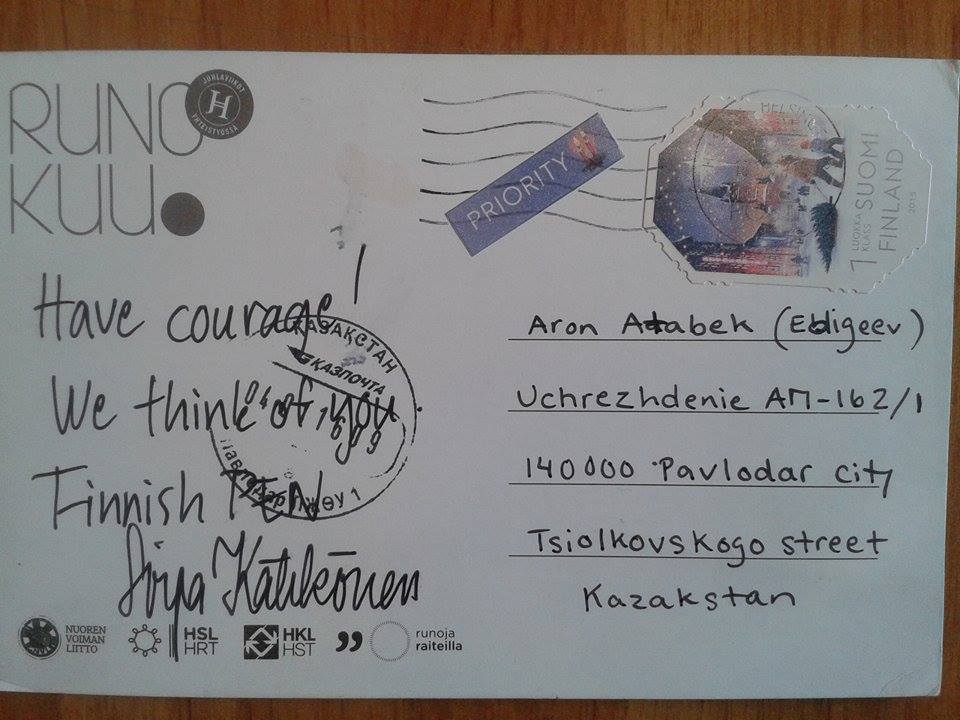 RUNO
KUU.
JUHLAVIIKOT
H
YHTEISTYÖSSÄ
PRIORITY
HELSINKI
1 LUOKKA KLASS
SUOMI
FINLAND
2015
Have courage!
We think of you
Finnish PEN
ҚАЗАҚСТАН
ҚАЗПОЧТА
Aron Atabek (Edigeev)
Uchrezhdenie АП-162/1
140000 Pavlodar city
Tsiolkovskogo street
Kazakstan
NUOREN
VOIMAN
LIITTO
HSL
HRT
HKL
HST
runoja
raiteilla